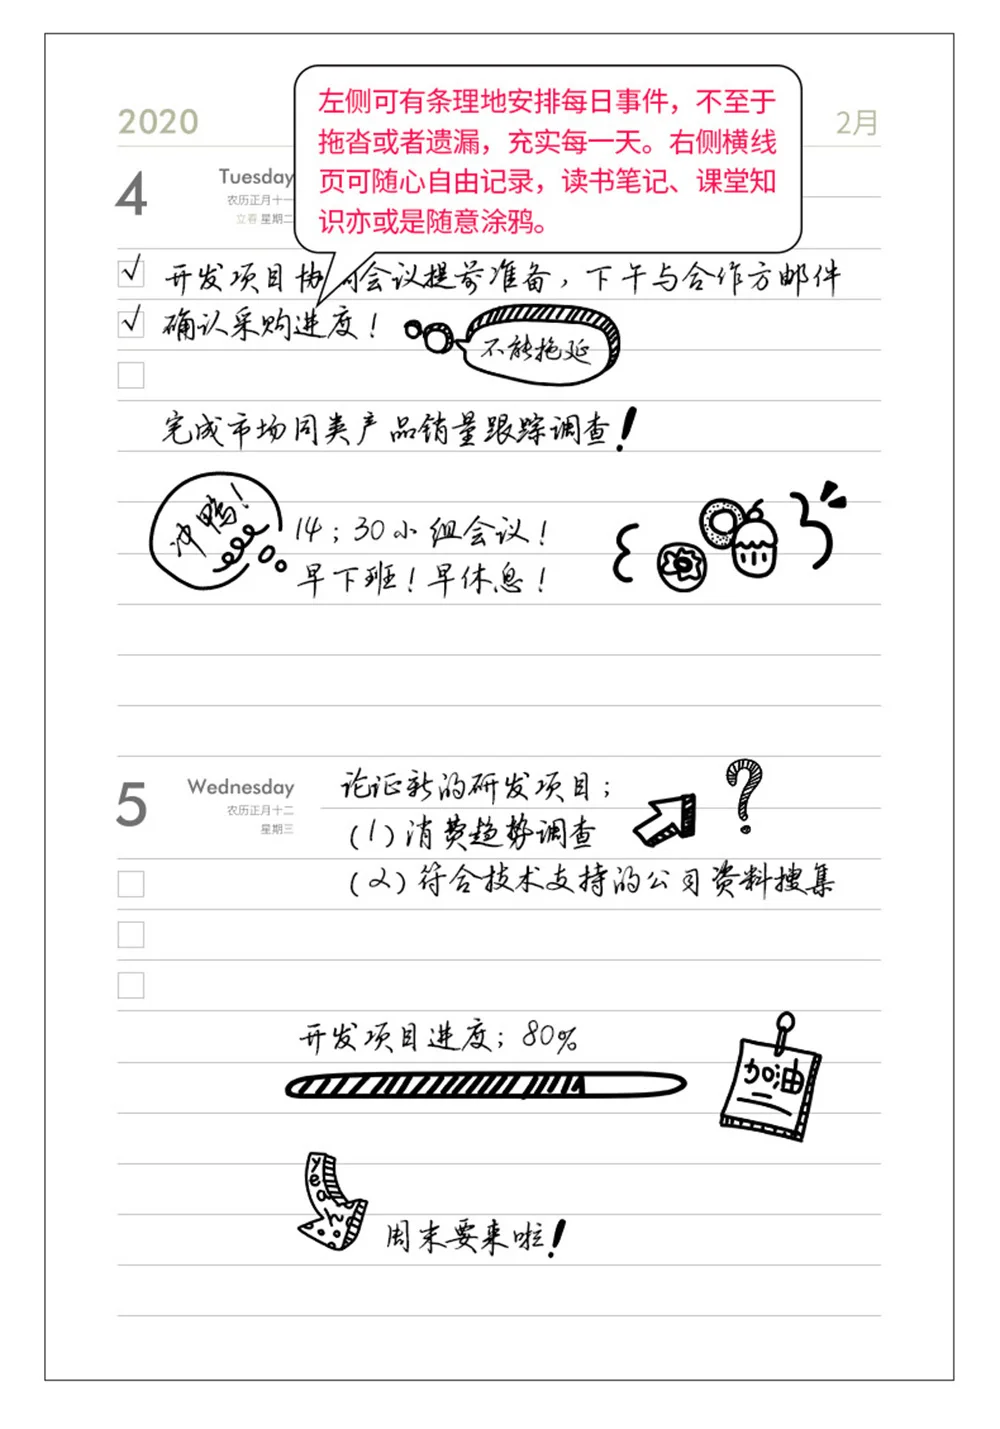 2020
2月
左侧可有条理地安排每日事件，不至于
拖沓或者遗漏，充实每一天。右侧横线
页可随心自由记录，读书笔记、课堂知
识亦或是随意涂鸦。
4
Tuesday
农历正月十一
立春 星期二
√ 开发项目协 会议提前准备，下午与合作方邮件
√ 确认采购进度！
不能拖延
完成市场同类产品销量跟踪调查！
冲鸭！
14；30小组会议！
早下班！早休息！
5
Wednesday
农历正月十二
星期三
论证新的研发项目；
(1)消费趋势调查
(2)符合技术支持的公司资料搜集
?
开发项目进度；80%
加油
yeah
周末要来啦！